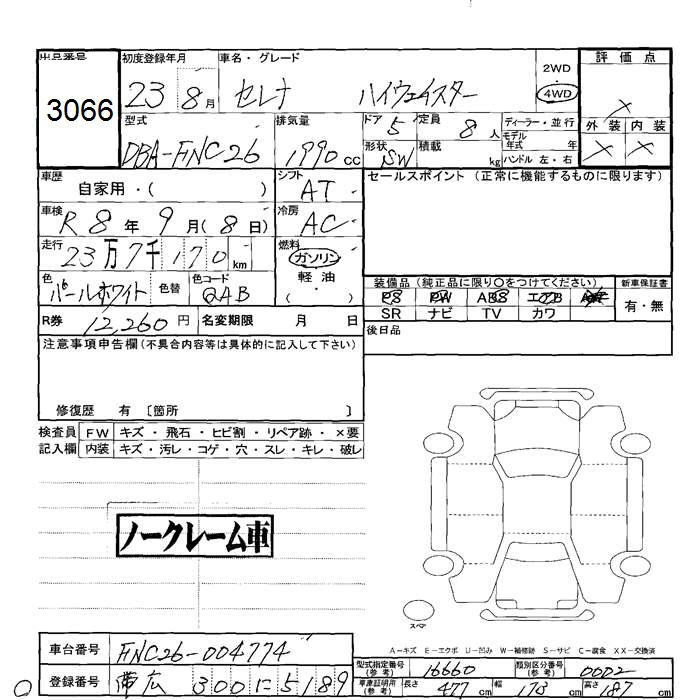 出品番号 初度登録年月 車名・グレード 評価点
3066 23 8月 セレナ ハイウェイスター 2WD 4WD ×
型式 排気量 ドア 5 定員 8人 ディーラー・並行 外装 内装
DBA-FNC26 1990cc 形状 SW 積載 kg モデル年式 年 × ×
ハンドル 左・右
車歴 自家用・( ) シフト AT セールスポイント (正常に機能するものに限ります)
車検 R8年9月(8日) 冷房 AC
走行 23万7千170km 燃料 ガソリン
軽油
色 パールホワイト 色替 色コード QAB 装備品 (純正品に限り○をつけてください) 新車保証書
PS PW ABS エアB AW 有・無
R券 12,260円 名変期限 月 日 SR ナビ TV カワ
注意事項申告欄(不具合内容等は具体的に記入して下さい) 後日品
修復歴 有 〔箇所 〕
検査員 FW キズ・飛石・ヒビ割・リペア跡・×要
記入欄 内装 キズ・汚レ・コゲ・穴・スレ・キレ・破レ
ノークレーム車
スペア
A-キズ E-エクボ U-凹み W-補修跡 S-サビ C-腐食 XX-交換済
車台番号 FNC26-004774 型式指定番号(参考) 16660 類別区分番号(参考) 0002
登録番号 帯広 300 に 5189 車庫証明用(参考) 長さ 477cm 幅 173cm 高さ 187cm